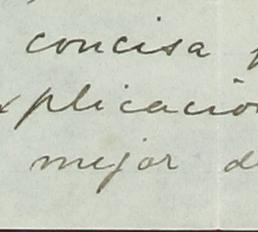 concisa
xplicació
mejor d